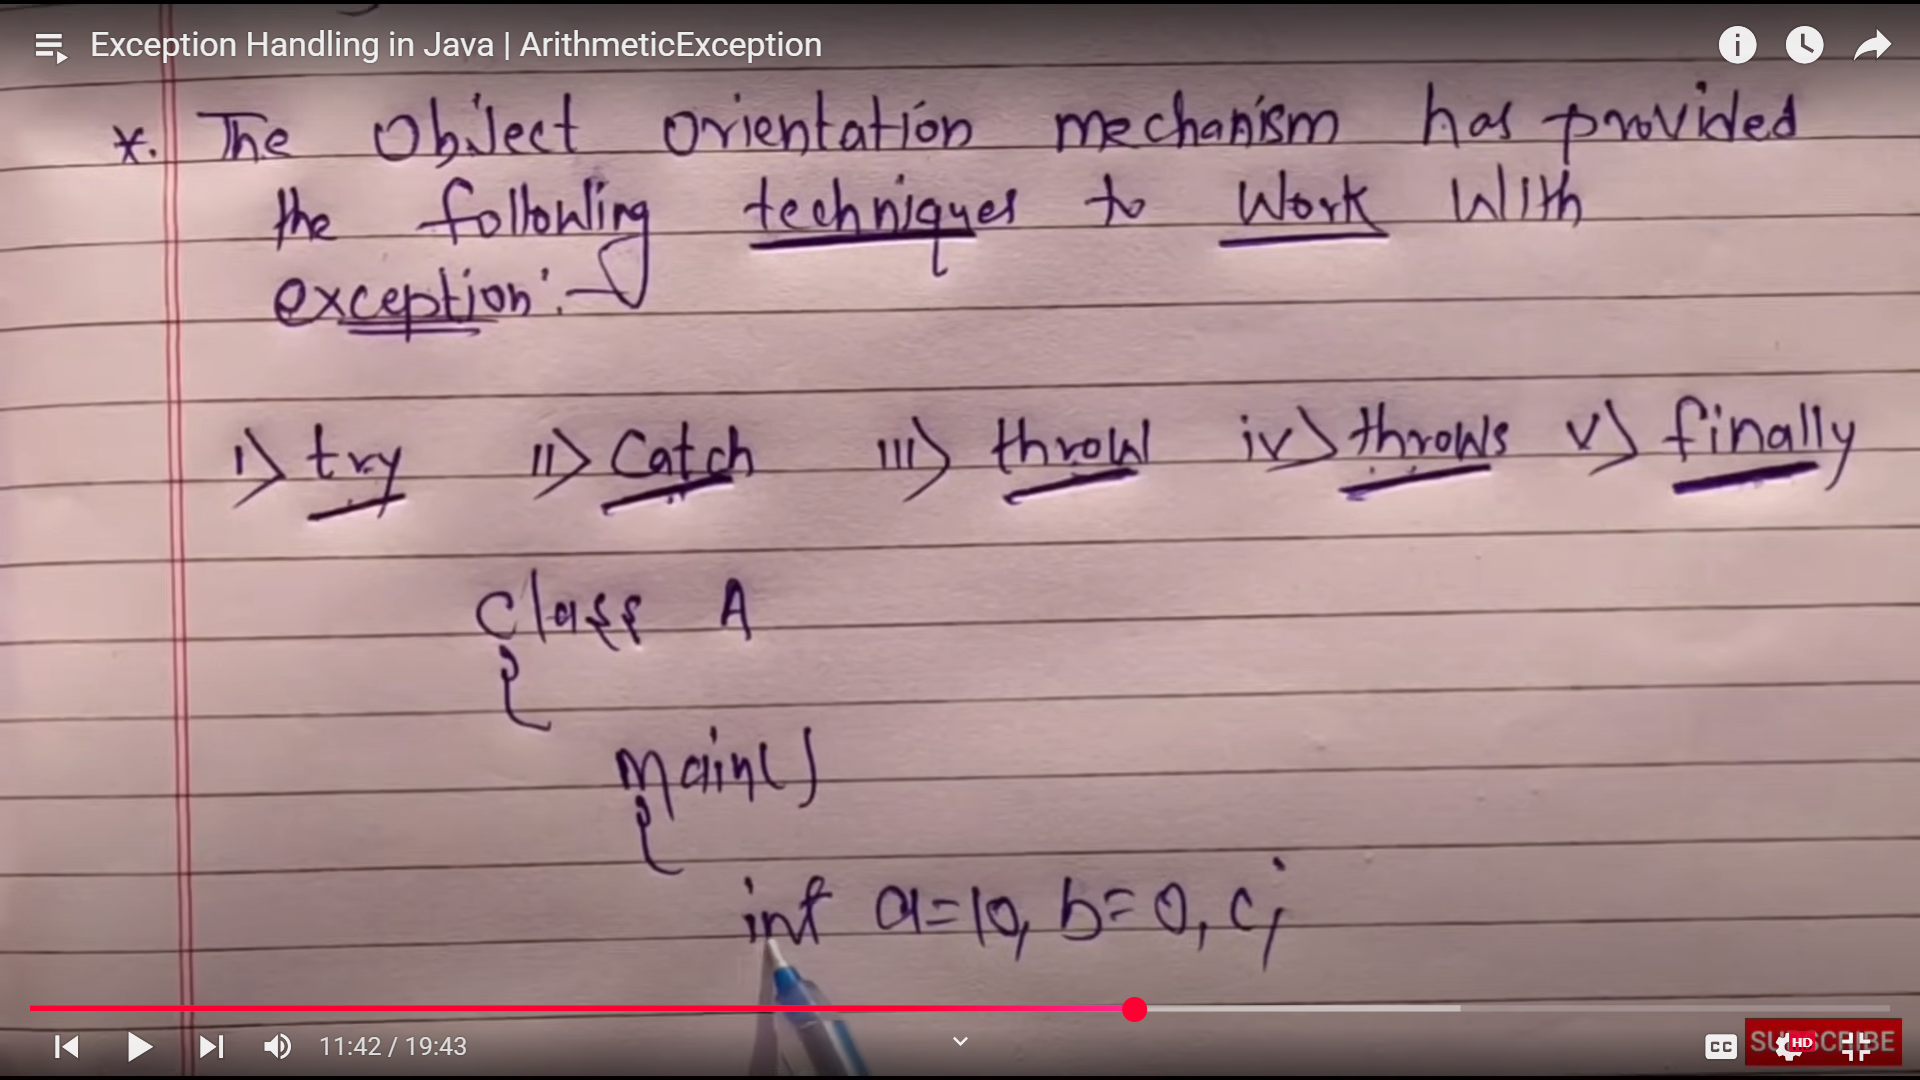 Exception Handling in Java | ArithmeticException
*. The Object orientation mechanism has provided
the following techniques to Work With
exception:-
i) try ii) Catch iii) throw iv) throws v) finally
Class A
{
main()
{
int a=10, b=0, c;
11:42 / 19:43
CC
SUBSCRIBE
HD